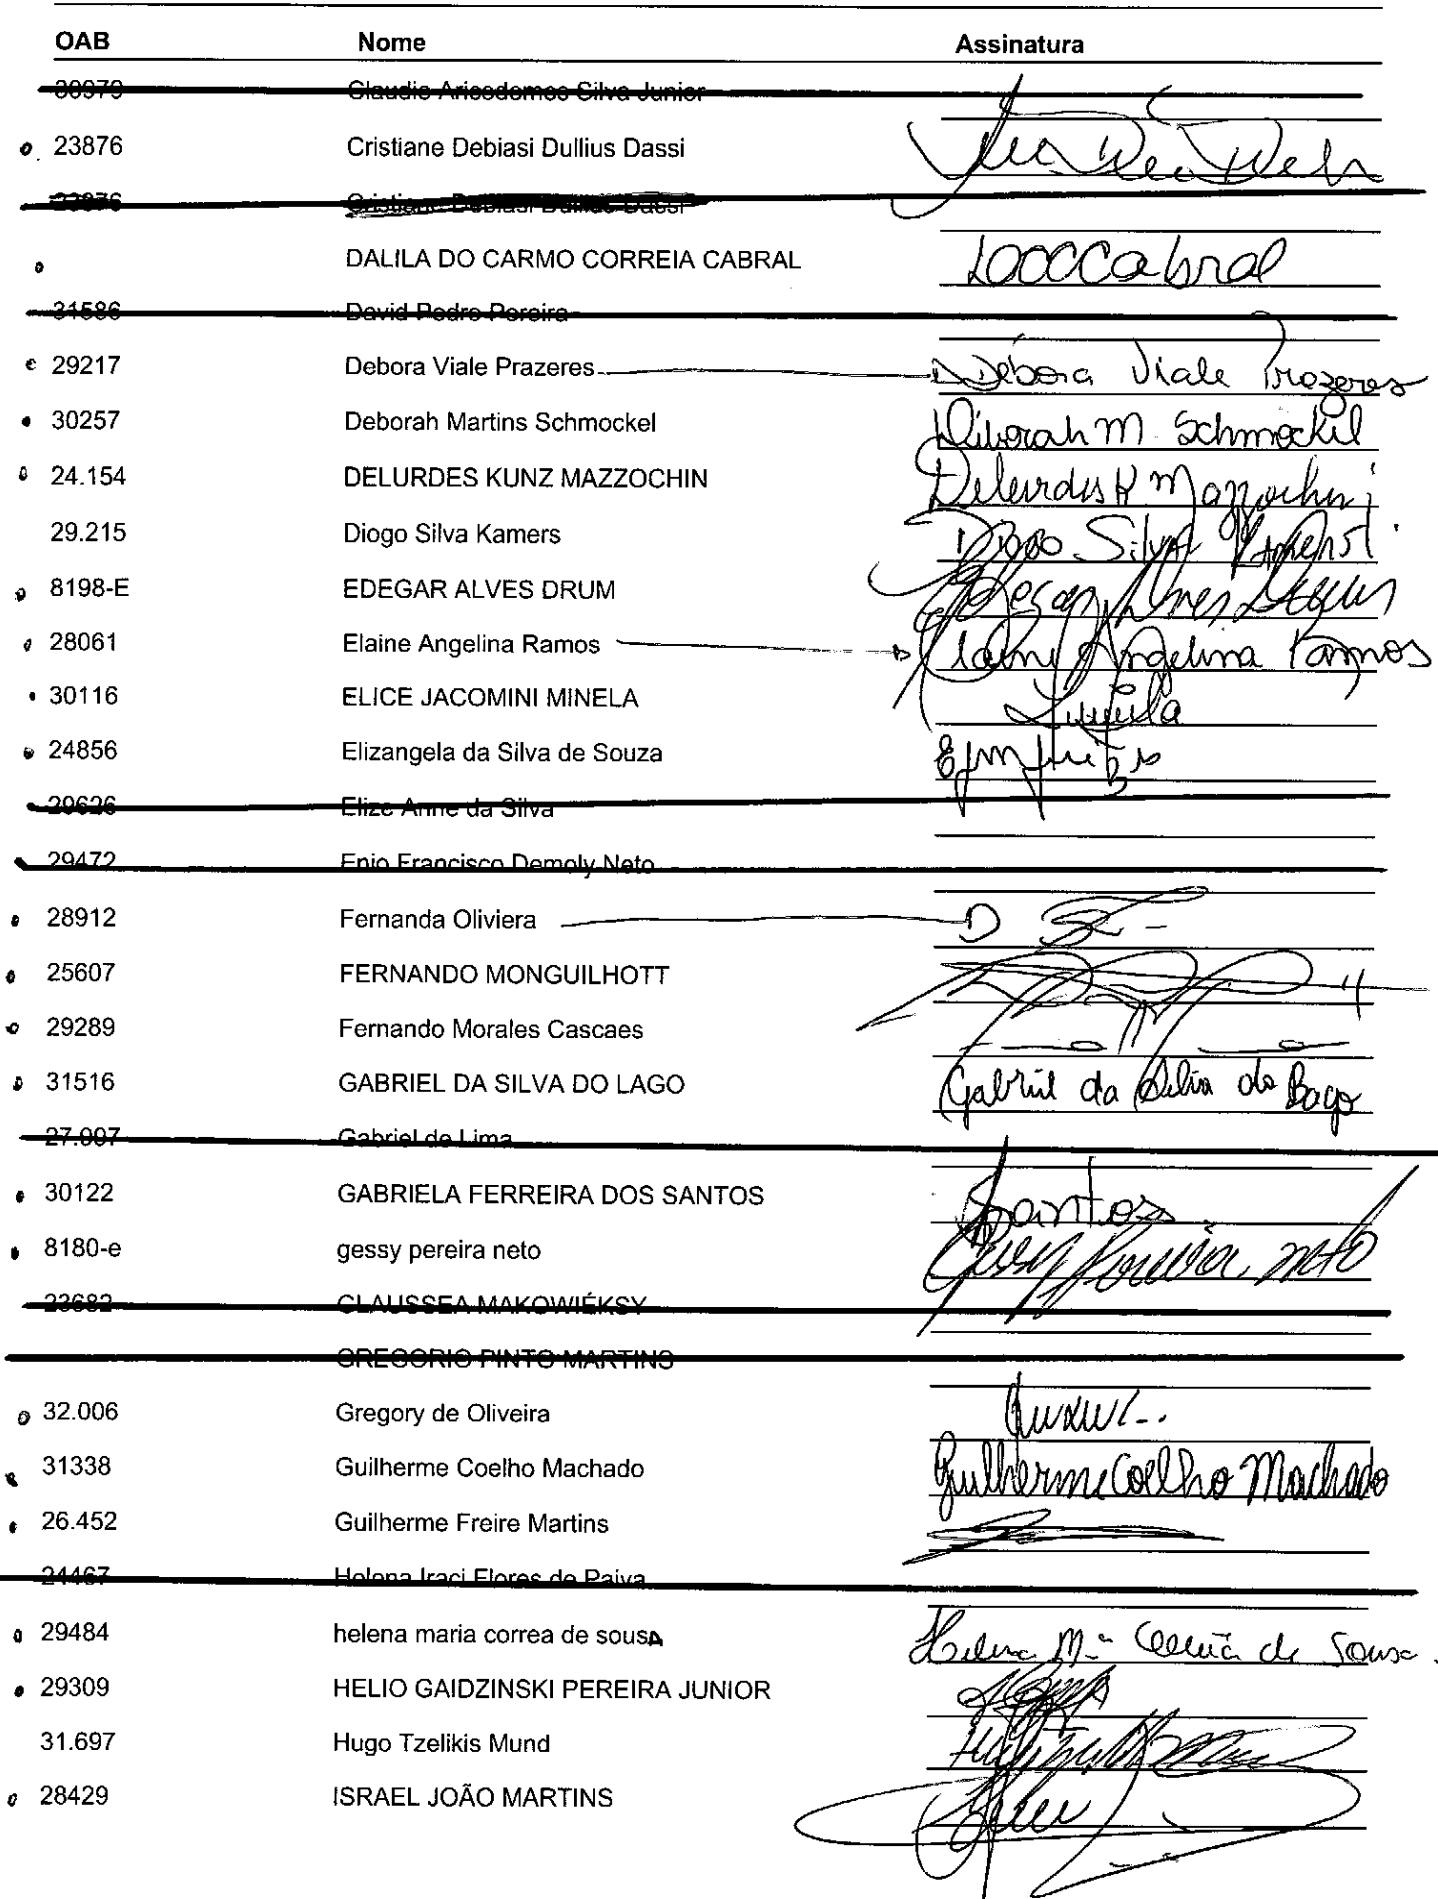 OAB Nome Assinatura
30979 Claudio Aricodemes Silva Junior
23876 Cristiane Debiasi Dullius Dassi
23876 Cristiane Debiasi Dullius Dassi
DALILA DO CARMO CORREIA CABRAL Cabral
31586 David Pedro Pereira
29217 Debora Viale Prazeres Débora Viale Prazeres
30257 Deborah Martins Schmockel Déborah M. Schmockel
24.154 DELURDES KUNZ MAZZOCHIN Delurdes K Mazzochin
29.215 Diogo Silva Kamers Diogo Silva Kamers
8198-E EDEGAR ALVES DRUM Edegar Alves
28061 Elaine Angelina Ramos Elaine Angelina Ramos
30116 ELICE JACOMINI MINELA
24856 Elizangela da Silva de Souza
29626 Elize Anne da Silva
29472 Enio Francisco Demoly Neto
28912 Fernanda Oliviera
25607 FERNANDO MONGUILHOTT
29289 Fernando Morales Cascaes
31516 GABRIEL DA SILVA DO LAGO Gabriel da Silva do Lago
27.997 Gabriel de Lima
30122 GABRIELA FERREIRA DOS SANTOS Santos
8180-e gessy pereira neto Gessy Pereira neto
23682 GLAUSSEA MAKOWIÉKSY
GREGORIO PINTO MARTINS
32.006 Gregory de Oliveira
31338 Guilherme Coelho Machado Guilherme Coelho Machado
26.452 Guilherme Freire Martins
24467 Helena Iraci Flores de Paiva
29484 helena maria correa de sousa Helena Mª Correia de Sousa.
29309 HELIO GAIDZINSKI PEREIRA JUNIOR
31.697 Hugo Tzelikis Mund
28429 ISRAEL JOÃO MARTINS